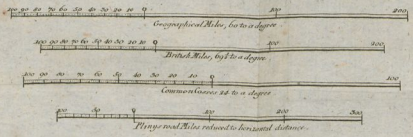 110 90 80 70 60 50 40 30 20 10 0 100 200
Geographical Miles, 60 to a degree
100 90 80 70 60 50 40 30 20 10 0 100 200
British Miles, 69½ to a degree
100 90 80 70 60 50 40 30 20 10 0 100
Common Cosses 42 to a degree
100 50 0 100 200 300
Plinys road Miles reduced to horizontal distance